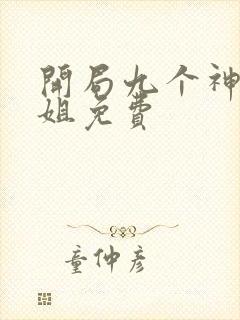 開局九个神
姐免費
童仲彦